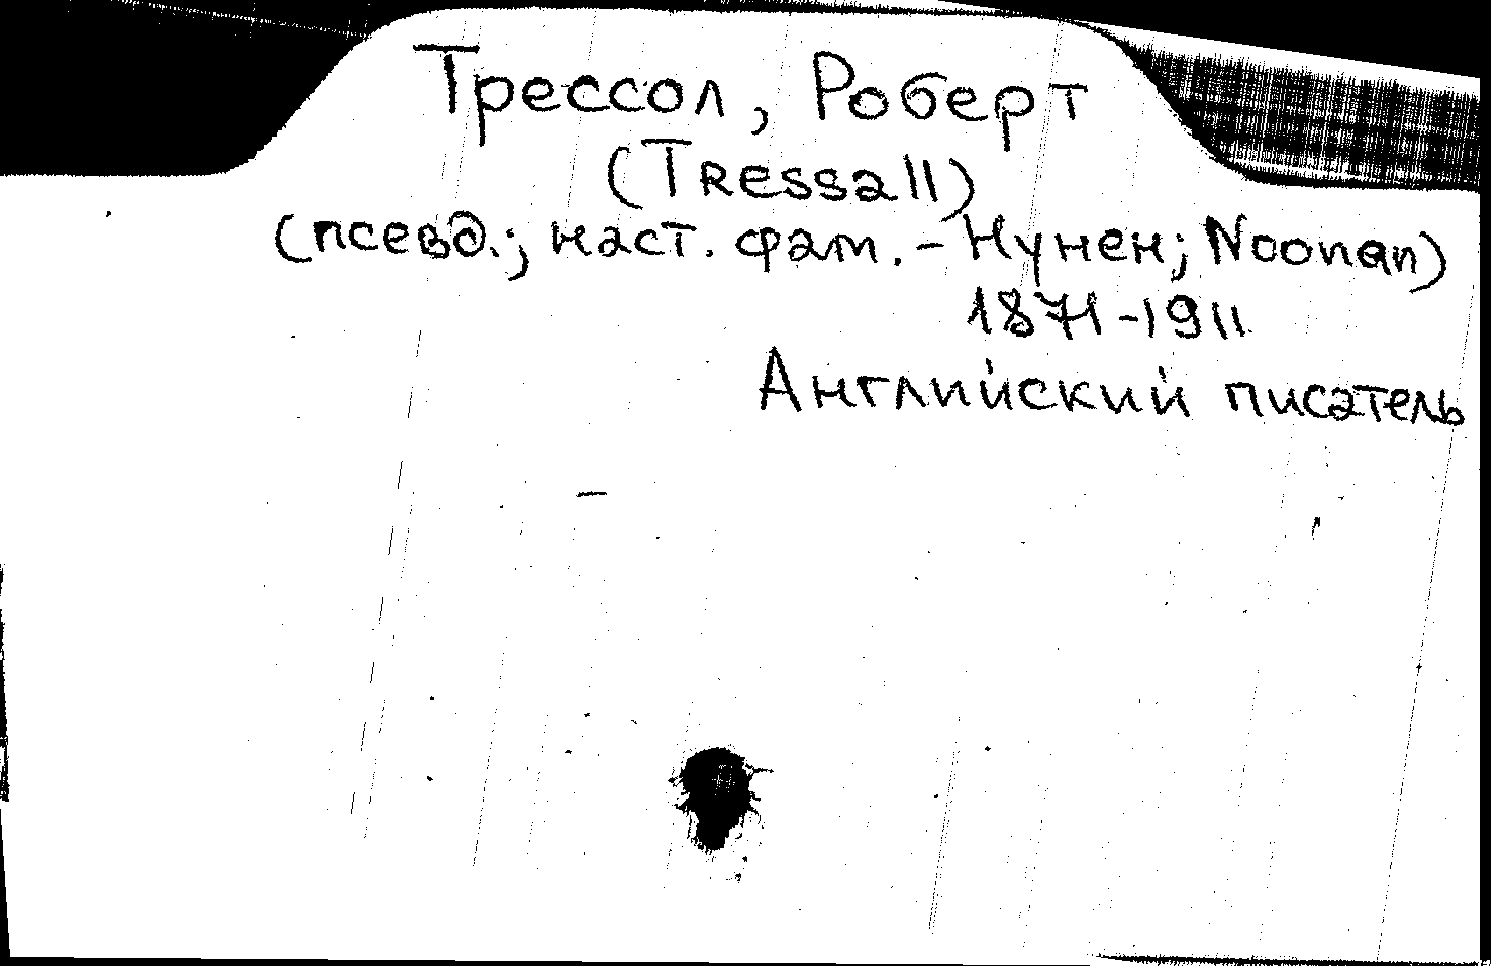 Трессол, Роберт
(Tressall)
(псевд.; наст. фам. - Нунен; Noonan)
1871-1911
Английский писатель